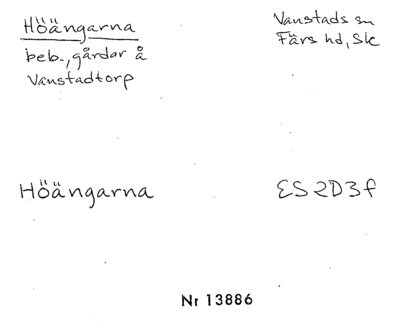 Höängarna
beb., gårdar å
Vanstadtorp
Vanstads sn
Färs hd, Sk
Höängarna
ES 2D3f
Nr 13886